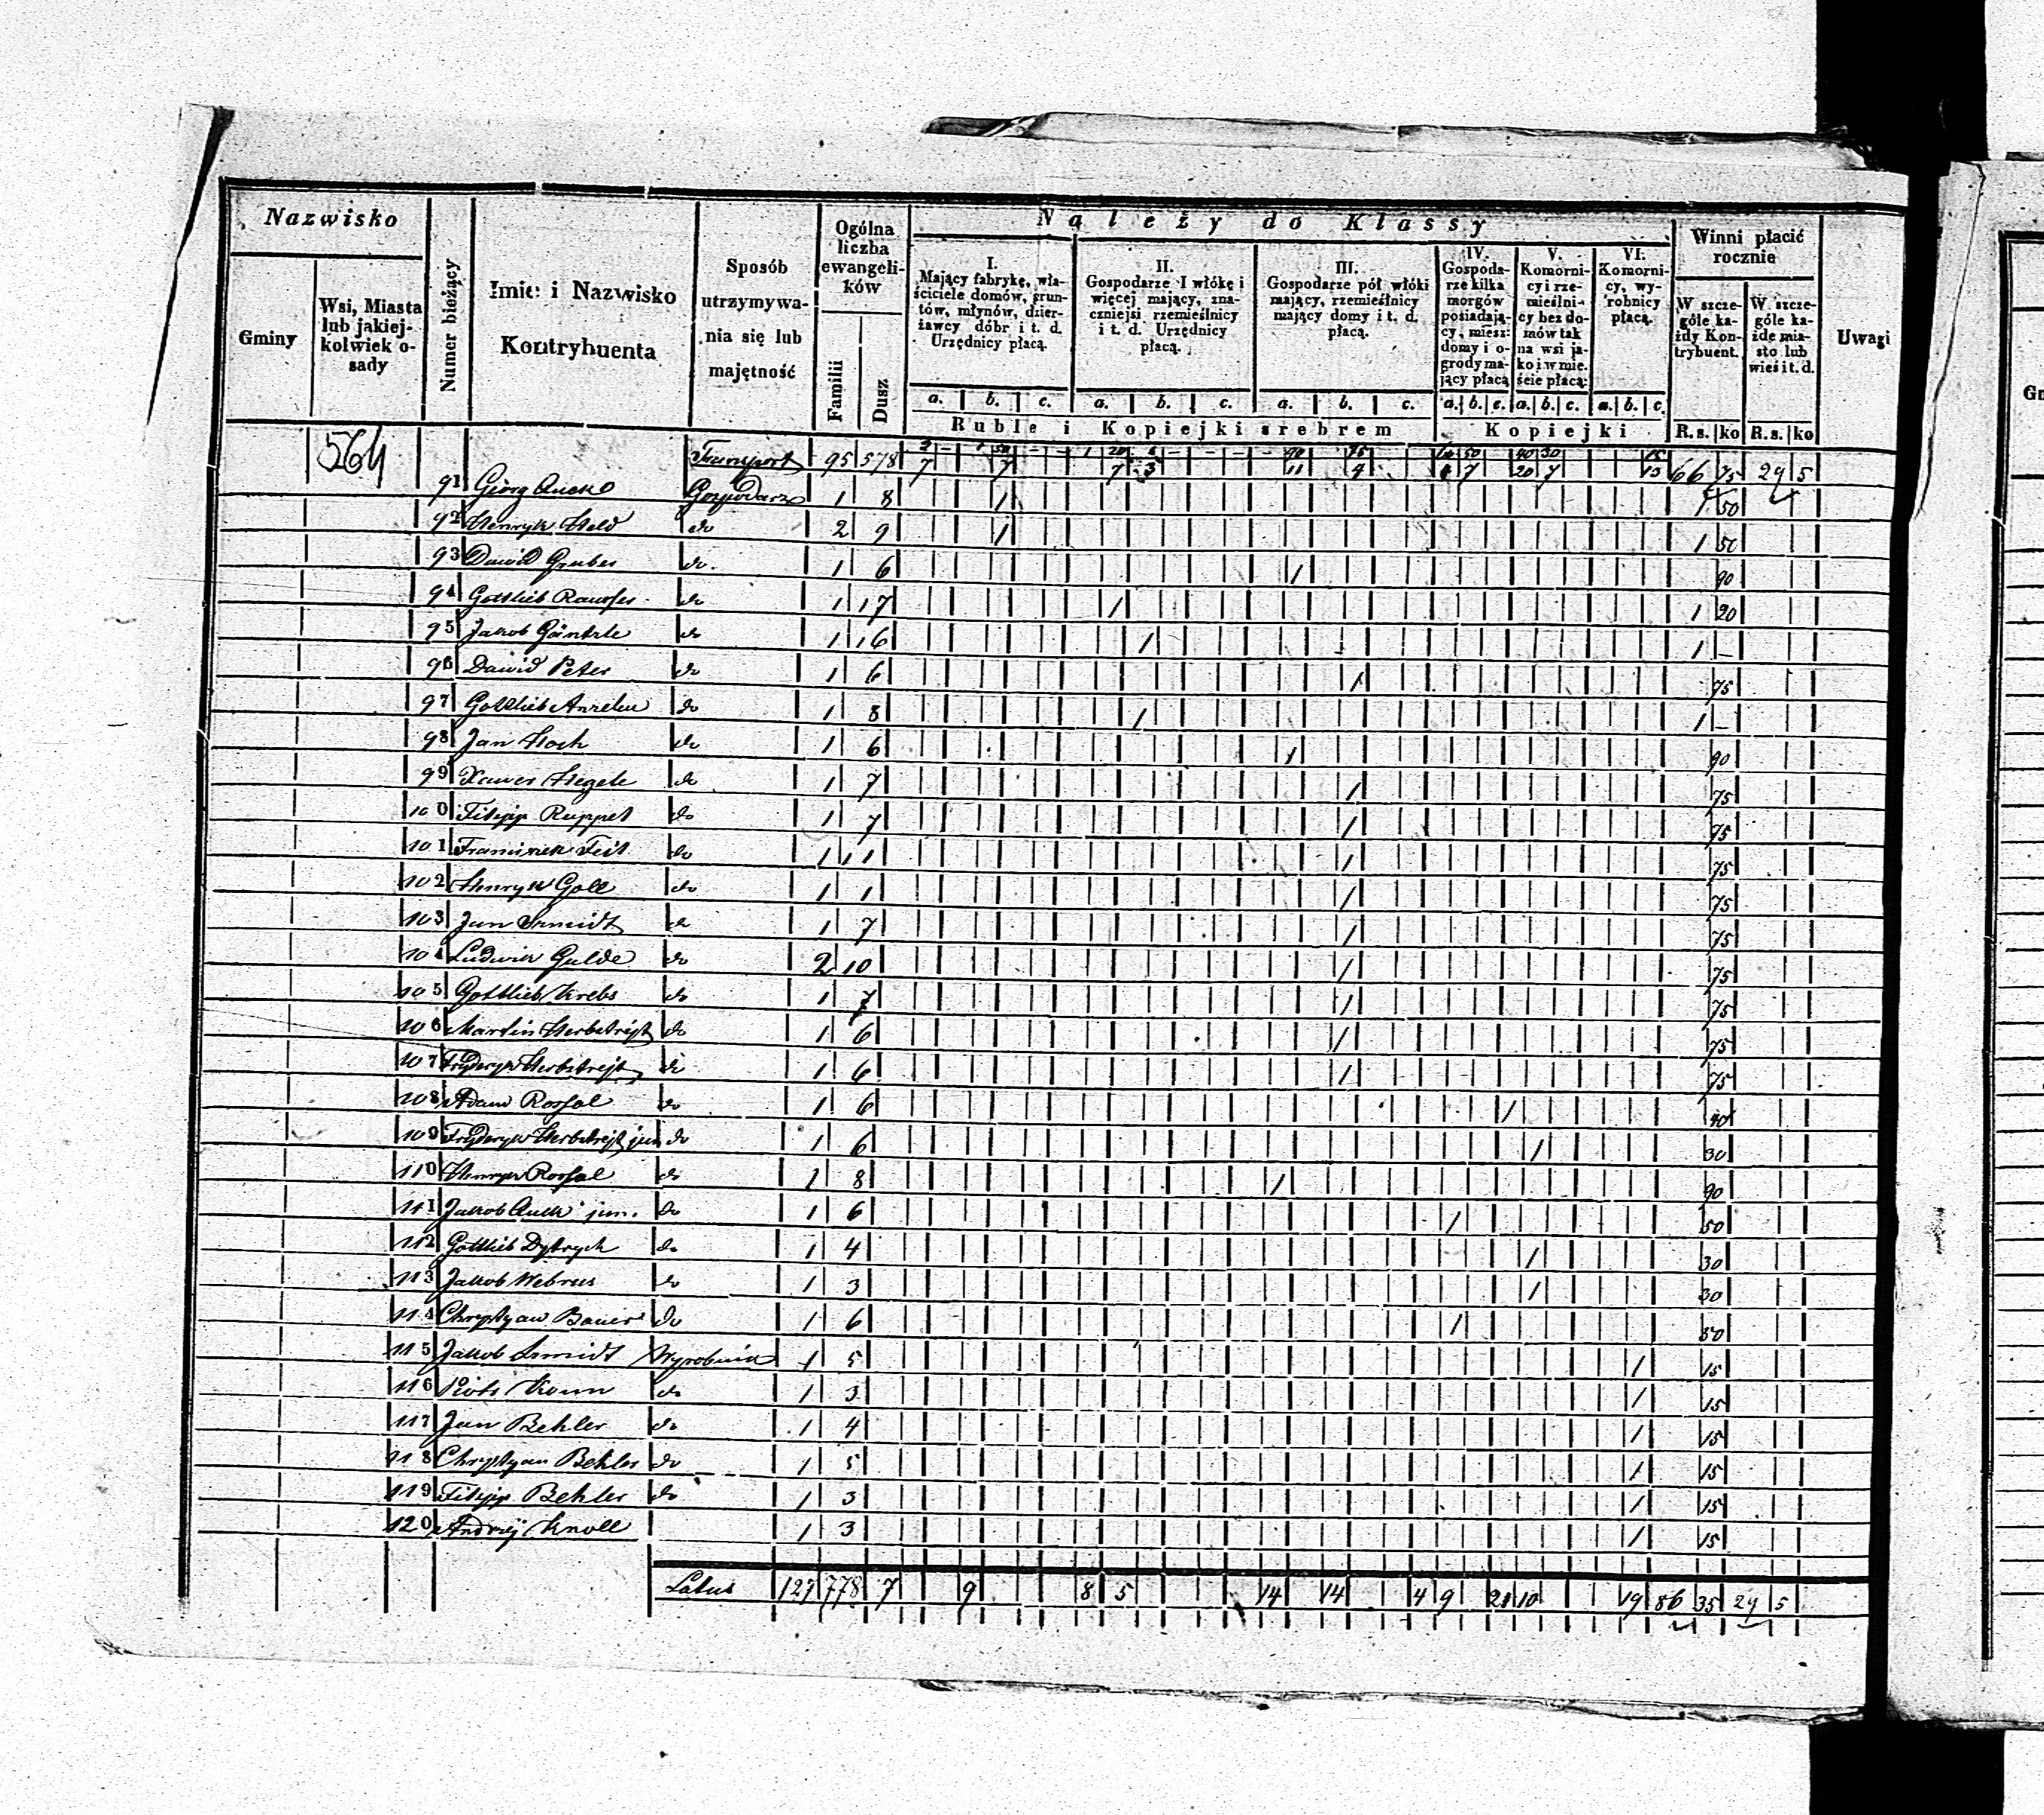 Nazwisko
Gminy
Wsi, Miasta lub jakiej-kolwiek o-sady
Numer bieżący
Imię i Nazwisko Kontrybuenta
Sposób utrzymywa-nia się lub majętność
Ogólna liczba ewangeli-ków
Familii
Dusz
Należy do Klassy
I. Mający fabrykę, wła-ściciele domów, grun-tów, młynów, dzier-żawcy dóbr i t. d. Urzędnicy płacą.
II. Gospodarze 1 włókę i więcej mający, zna-czniejsi rzemieślnicy i t. d. Urzędnicy płacą.
III. Gospodarze pół włóki mający, rzemieślnicy mający domy i t. d. płacą.
IV. Gospoda-rze kilka morgów posiadają-cy, miesz: domy i o-grody ma-jący płacą
V. Komorni-cy i rze-mieślni-cy bez do-mów tak na wsi ja-ko i w mie-ście płacą:
VI. Komorni-cy, wy-robnicy płacą.
Winni płacić rocznie
W szcze-góle ka-żdy Kon-trybuent.
W szcze-góle ka-żde mia-sto lub wieś i t. d.
Uwagi
a. b. c. a. b. c. a. b. c. a. b. c. a. b. c. a. b. c.
Ruble i Kopiejki srebrem
Kopiejki
R.s. ko R.s. ko
564
Transport 95 578 7 7 7 3 11 4 7 20 7 13 66 75 29 5
91 Georg Auck Gospodarz 1 8 1 1 50
92 Henryk Held do 2 9 1 1 50
93 Dawid Gruber do. 1 6 1 90
94 Gottlieb do 1 17 1 1 20
95 Jakob do 1 16 1 1 –
96 Dawid Peter do 1 6 1 75
97 Gottlieb do 1 8 1 1 –
98 Jan Hoch do 1 6 1 90
99 Xawer Hegele do 1 7 1 75
100 Filipp Ruppel do 1 7 1 75
101 Franciszek Feit do 1 11 1 75
102 Henryk Goll do 1 1 1 75
103 Jan Szmidt do 1 7 1 75
104 Ludwik Gulde do 2 10 1 75
105 Gottlieb Krebs do 1 7 1 75
106 Martin Herbstrejt do 1 6 1 75
107 Fryderyk Herbstrejt do 1 6 1 75
108 Adam Rossol do 1 6 1 40
109 Fryderyk Herbstrejt jun do 1 6 1 30
110 Henryk Rossol do 1 8 1 90
111 Jakob Auck jun. do 1 6 1 50
112 Gottlieb Dytrych do 1 4 1 30
113 Jakob do 1 3 1 30
114 Chrystyan Bauer do 1 6 1 50
115 Jakob Szmidt Wyrobnik 1 5 1 15
116 Piotr do 1 3 1 15
117 Jan Behler do 1 4 1 15
118 Chrystyan Behler do 1 5 1 15
119 Filipp Behler do 1 3 1 15
120 Andrzej Knoll 1 3 1 15
Latus 127 778 7 9 8 5 14 14 4 9 21 10 19 86 35 29 5